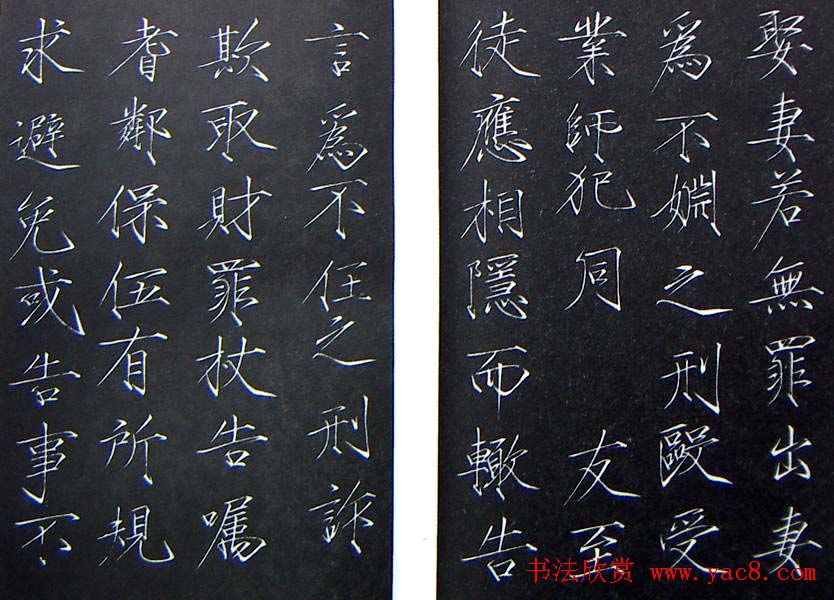 娶妻若無罪出妻
爲不婣之刑毆受
業師犯同 友至
徒應相隱而輙告
言爲不任之刑詐
欺取財罪杖告嘱
耆鄰保伍有所規
求避免或告事不
书法欣赏 www.yac8.com